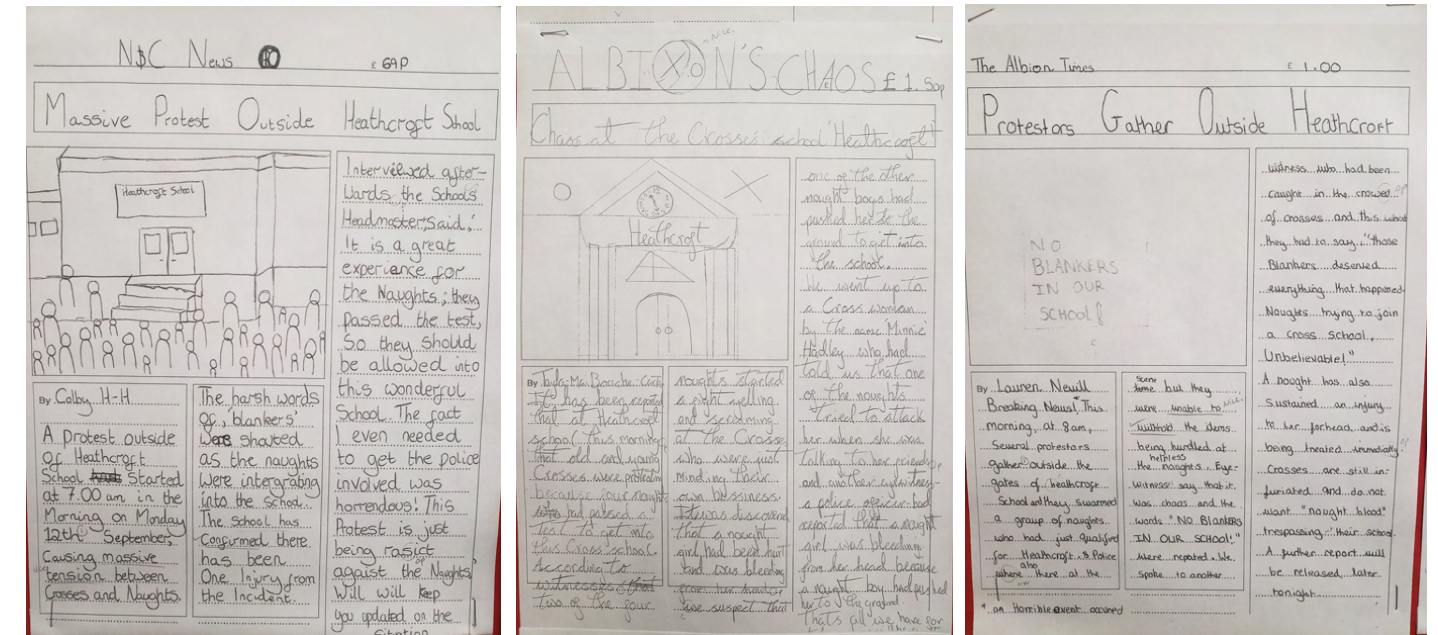 N$C News
£ 69P
Massive Protest Outside Heathcroft School
Heathcroft School
By Colby H-H
A protest outside
of Heathcroft
School started
at 7.00 am in the
Morning on Monday
12th September.
Causing massive
tension between
Crosses and Naughts.
The harsh words
of, 'blankers'
were shouted
as the naughts
were intergrating
into the school.
The school has
Confirmed there
has been
One Injury from
the Incident.
Interviewed after-
wards the Schools
Headmaster, Said,'
It is a great
experience for
the Naughts; they
passed the test,
So they should
be allowed into
this wonderful
School. The fact
I even needed
to get the police
involved was
horrendous! This
Protest is just
being rasict
against the Naughts,
Will will keep
you updated on the
Nice.
ALBION'S CHAOS £1.50p
Chaos at the Crosses school 'Heathcroft'
Heathcroft
By
It has been reported
that at Heathcroft
school this morning
that old and young
Crosses were protesting
because four noughts
had passed a
test to get into
this Cross school.
According to
witnesses that
two of the four
noughts started
a fight yelling
and screaming
at the Crosses
who were just
minding their
own bissiness.
It was discovered
that a nought
girl had been hurt
and was bleeding
from her
we suspect that
one of the other
nought boys had
pushed her to the
ground to get into
the school.
We went up to
a Cross woman
by the name 'Minnie
Hadley' who had
told us that one
of the noughts
tried to attack
her when she was
talking to her friends
and another eyewitness
a police officer had
reported that a nought
girl was bleeding
from her head because
a nought boy had pushed
her to the ground.
That's all we have for
The Albion Times
£ 1.00
Protestors Gather Outside Heathcroft
NO
BLANKERS
IN OUR
SCHOOL!
By Lauren Nevill
Breaking News! * This
morning, at 8am,
Several protestors
gather outside the
gates of heathcroft
School and they swarmed
a group of naughts
who had just qualified
for Heathcroft. Police
also
where there at the
* an Horrible event occured
scene
but they
were unable to
withhold the items
being hurdled at
helpless
the naughts. Eye-
witness say that it
was chaos and the
words "NO BLANKERS
IN OUR SCHOOL!"
were repeated. We
spoke to another
witness who had been
caught in the crowed
of crosses and this what
they had to say. "those
Blankers deserved
everything that happened
Noughts trying to join
a cross school,
Unbelievable!"
A nought has also
Sustained an injury
to her forhead and is
being treated immediatly
Crosses are still in-
furiated and do not
want "nought blood"
trespassing their school.
A further report will
be released later
tonight.